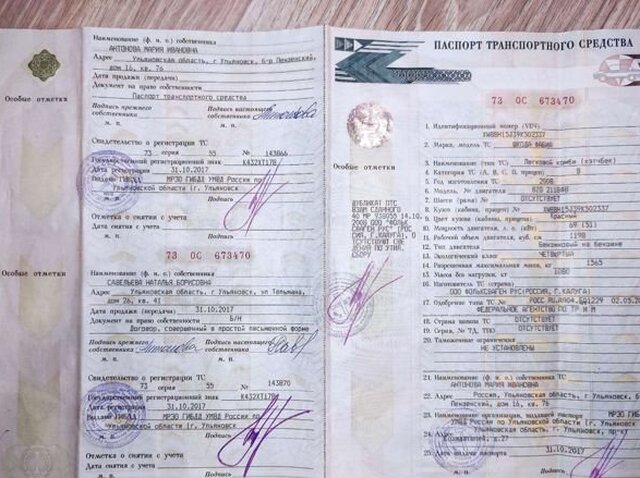 Особые отметки
Наименование (ф. и. о.) собственника
АНТОНОВА МАРИЯ ИВАНОВНА
Адрес Ульяновская область, г Ульяновск, б-р Пензенский,
дом 16, кв. 76
Дата продажи (передачи)
Документ на право собственности
Паспорт транспортного средства
Подпись прежнего собственника
Подпись настоящего собственника
М. П.
М. П.
Свидетельство о регистрации ТС
73 серия 55 № 143866
Государственный регистрационный знак К432ХТ178
Дата регистрации 31.10.2017
Выдано ГИБДД МРЭО ГИБДД УМВД России по
Ульяновской области (г. Ульяновск)
М. П. Подпись
Отметка о снятии с учета
Дата снятия с учета
73 ОС 673470
Особые отметки
Наименование (ф. и. о.) собственника
САВЕЛЬЕВА НАТАЛЬЯ БОРИСОВНА
Адрес Ульяновская область, г Ульяновск, ул Тельмана,
дом 26, кв. 41
Дата продажи (передачи) 31.10.2017
Документ на право собственности Б/Н
Договор, совершенный в простой письменной форме
Подпись прежнего собственника
Подпись настоящего собственника
М. П.
М. П.
Свидетельство о регистрации ТС
73 серия 55 № 143870
Государственный регистрационный знак
Дата регистрации 31.10.2017
Выдано ГИБДД МРЭО ГИБДД УМВД России по
Ульяновской области (г. Ульяновск)
М. П. Подпись
Отметка о снятии с учета
Дата снятия с учета
ПАСПОРТ ТРАНСПОРТНОГО СРЕДСТВА
73 ОС 673470
1. Идентификационный номер (VIN)
2. Марка, модель ТС ШКОДА ФАБИЯ
3. Наименование (тип ТС) Легковой комби (хэтчбек)
4. Категория ТС (А, В, С, D, прицеп) В
5. Год изготовления ТС 2008
6. Модель, № двигателя
7. Шасси (рама) № ОТСУТСТВУЕТ
8. Кузов (кабина, прицеп) №
9. Цвет кузова (кабины, прицепа) Красный
10. Мощность двигателя, л. с. (кВт) 69 (51)
11. Рабочий объем двигателя, куб. см 1198
12. Тип двигателя Бензиновый на бензине
13. Экологический класс ЧЕТВЕРТЫЙ
14. Разрешенная максимальная масса, кг 1565
15. Масса без нагрузки, кг 1080
16. Изготовитель ТС (страна)
ООО ФОЛЬКСВАГЕН РУС (РОССИЯ, Г.КАЛУГА)
17. Одобрение типа ТС №
ФЕДЕРАЛЬНОЕ АГЕНТСТВО ПО ТР И М
18. Страна вывоза ТС ОТСУТСТВУЕТ
19. Серия, № ТД, ТПО ОТСУТСТВУЕТ
20. Таможенные ограничения
НЕ УСТАНОВЛЕНЫ
21. Наименование (ф. и. о.) собственника ТС
АНТОНОВА МАРИЯ ИВАНОВНА
22. Адрес Россия, Ульяновская область, г Ульяновск, б-р
Пензенский, дом 16, кв. 76
23. Наименование организации, выдавшей паспорт МРЭО ГИБДД
УМВД России по Ульяновской области (г. Ульяновск)
24. Адрес
25. Дата выдачи паспорта 31.10.2017
М. П. Подпись
ДУБЛИКАТ ПТС
ВЗАМ СДАННОГО